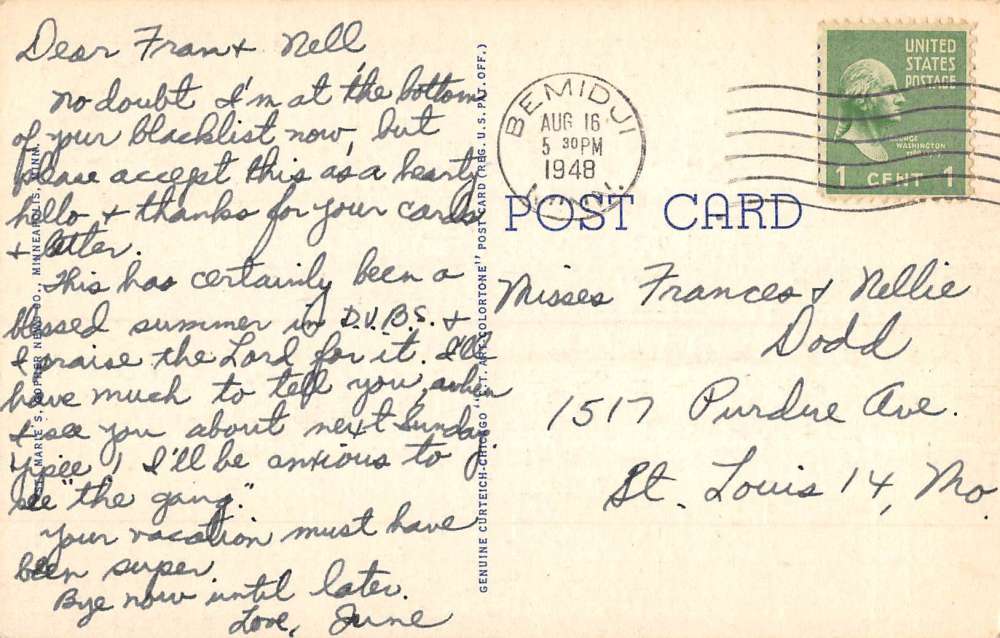 Dear Fran & Nell
No doubt I'm at the bottom
of your blacklist now, but
please accept this as a hearty
hello & thanks for your cards
& letter.
This has certainly been a
blessed summer in D.V.B.S. &
I praise the Lord for it. I'll
have much to tell you, when
I see you about next Sunday.
Yipee! I'll be anxious to
see "the gang."
Your vacation must have
been super.
Bye now until later.
Love, June
MARIE S. GOPHER NEWS CO., MINNEAPOLIS, MINN.
GENUINE CURTEICH-CHICAGO "C.T. ART-COLORTONE" POST CARD (REG. U.S. PAT. OFF.)
BEMIDJI
AUG 16
5 30 PM
1948
UNITED
STATES
POSTAGE
GEORGE
WASHINGTON
1 CENT 1
POST CARD
Misses Frances & Nellie
Dodd
1517 Purdue Ave.
St. Louis 14, Mo.